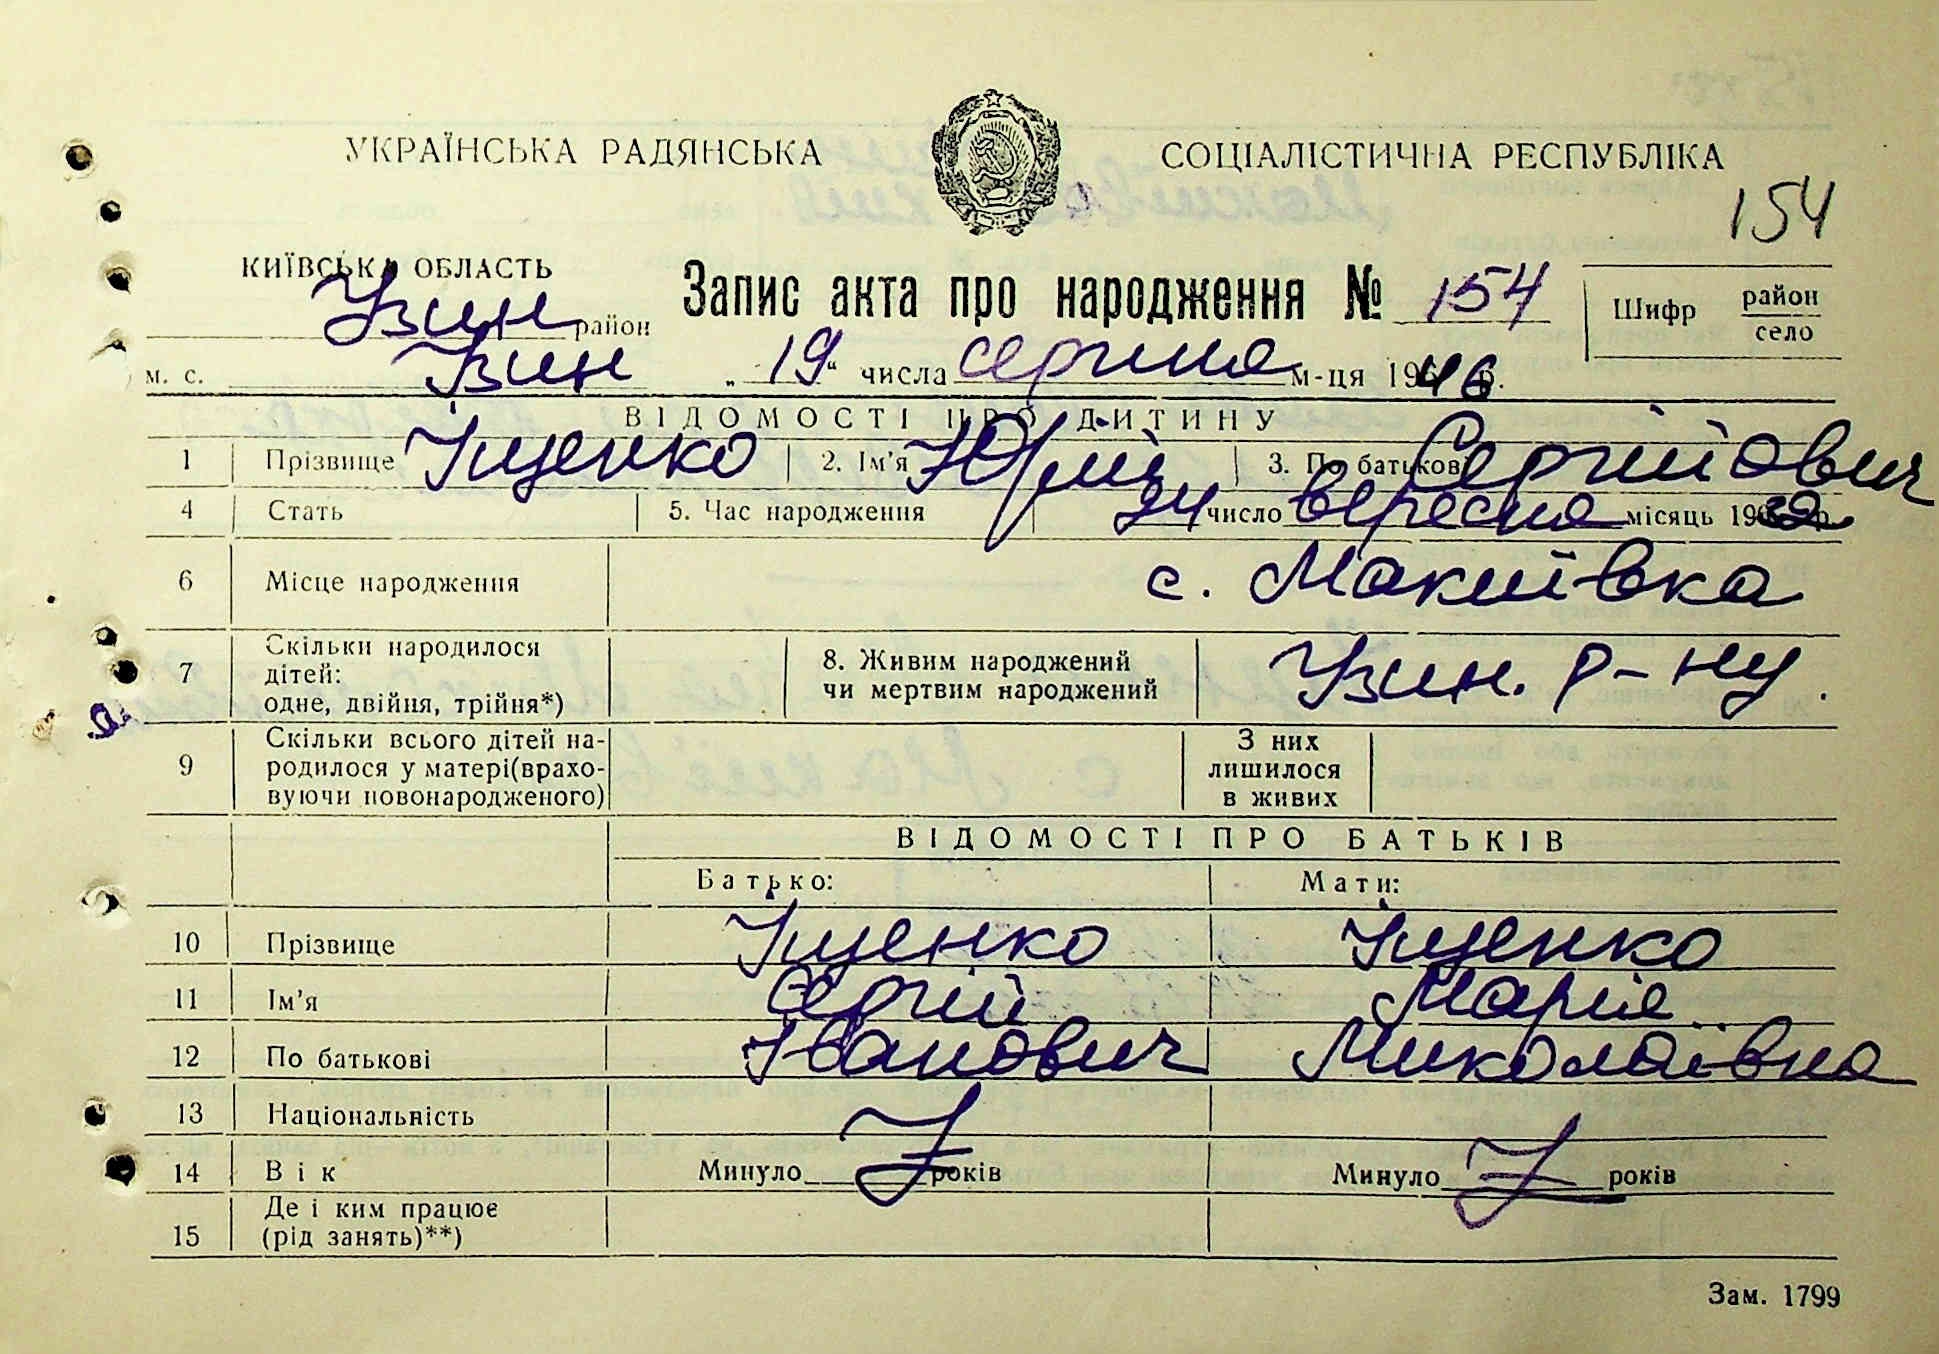 УКРАЇНСЬКА РАДЯНСЬКА СОЦІАЛІСТИЧНА РЕСПУБЛІКА
154
КИЇВСЬКА ОБЛАСТЬ
Узин район
Запис акта про народження № 154
Шифр район село
м. с. Узин „19“ числа серпня м-ця 1946 р.
ВІДОМОСТІ ПРО ДИТИНУ
1 Прізвище Іщенко 2. Ім'я Юрій 3. По батькові Сергійович
4 Стать 5. Час народження 24 число вересня місяць 1932 р.
6 Місце народження с. Макиївка
7 Скільки народилося дітей: одне, двійня, трійня*) 8. Живим народжений чи мертвим народжений Узин. р-ну.
9 Скільки всього дітей народилося у матері(враховуючи новонародженого) З них лишилося в живих
ВІДОМОСТІ ПРО БАТЬКІВ
Батько: Мати:
10 Прізвище Іщенко Іщенко
11 Ім'я Сергій Марія
12 По батькові Іванович Миколаївна
13 Національність
14 Вік Минуло років Минуло років
15 Де і ким працює (рід занять)**)
Зам. 1799